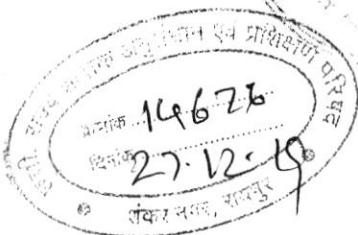 राज्य शैक्षिक अनुसंधान एवं प्रशिक्षण परिषद
क्रमांक 14626
दिनांक 27.12.19
शंकर नगर, रायपुर